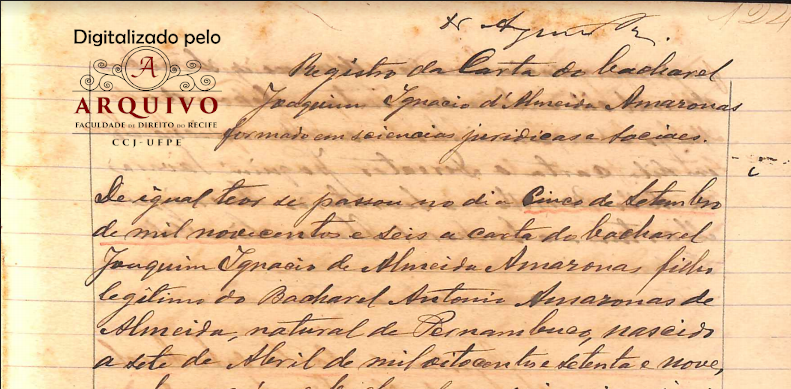 Digitalizado pelo
A
ARQUIVO
FACULDADE DE DIREITO DO RECIFE
CCJ-UFPE
124
Registro da Carta do bacharel
Joaquim Ignacio d'Almeida Amazonas
formado em sciencias juridicas e sociaes.
De igual teor se passou no dia cinco de Setembro
de mil novecentos e seis a carta do bacharel
Joaquim Ignacio de Almeida Amazonas, filho
legitimo do Bacharel Antonio Amazonas de
Almeida, natural de Pernambuco, nascido
a sete de Abril de mil oitocentos e setenta e nove,